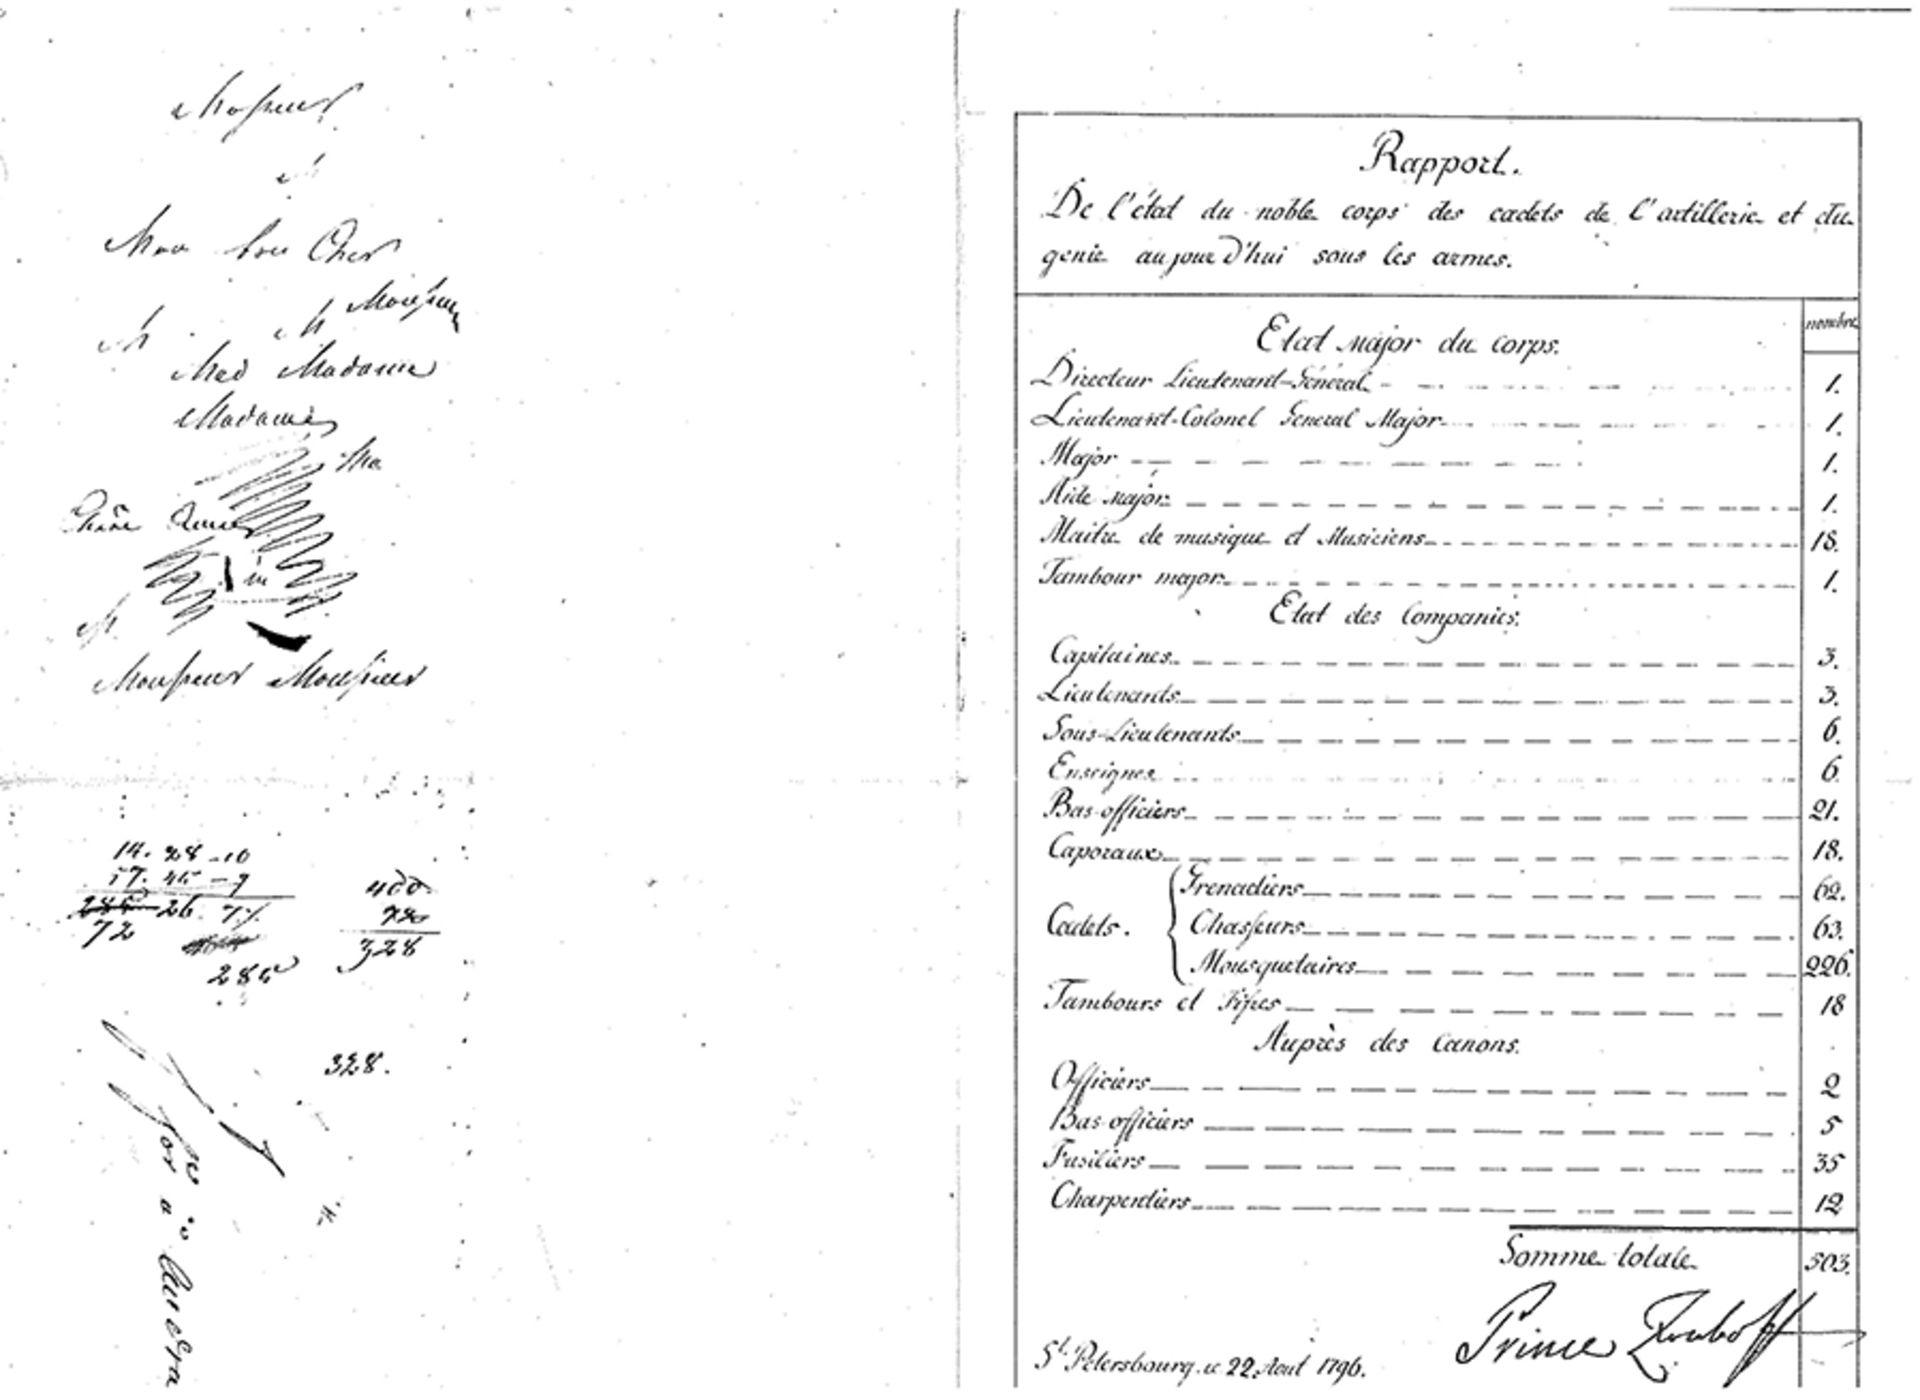 Monsieur
M
Mon bon Cher
M M Monsieur
Mad Madame
Madame
Ma
Chère
in
M
Monsieur Monsieur
14. 28 - 10
17. 45 - 9
26. 71
72
400.
328
285
328.
a
Rapport.
De l'état du noble corps des cadets de l'artillerie et du
genie aujourd'hui sous les armes.
nombre
Etat major du corps.
Directeur Lieutenant-Général 1.
Lieutenant-Colonel General Major 1.
Major 1.
Aide major 1.
Maitre de musique et Musiciens 18.
Tambour major 1.
Etat des Companies.
Capitaines 3.
Lieutenants 3.
Sous-Lieutenants 6.
Enseignes 6
Bas-officiers 21.
Caporaux 18.
Cadets. Grenadiers 62.
Chasseurs 63.
Mousquetaires 226.
Tambours et Fifres 18
Auprès des Canons.
Officiers 2
Bas officiers 5
Fusiliers 35
Charpentiers 12
Somme totale 503.
Prince Zouboff
St. Petersbourg. le 22. Aout 1796.